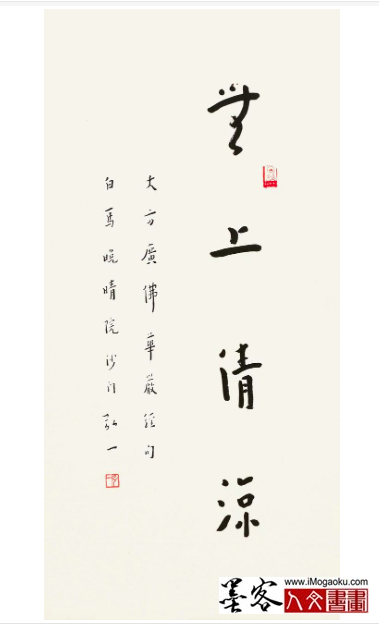 無上清涼
大方廣佛華嚴經句
白馬晚晴院沙門弘一
墨客
www.iMogaoku.com
人文書畫